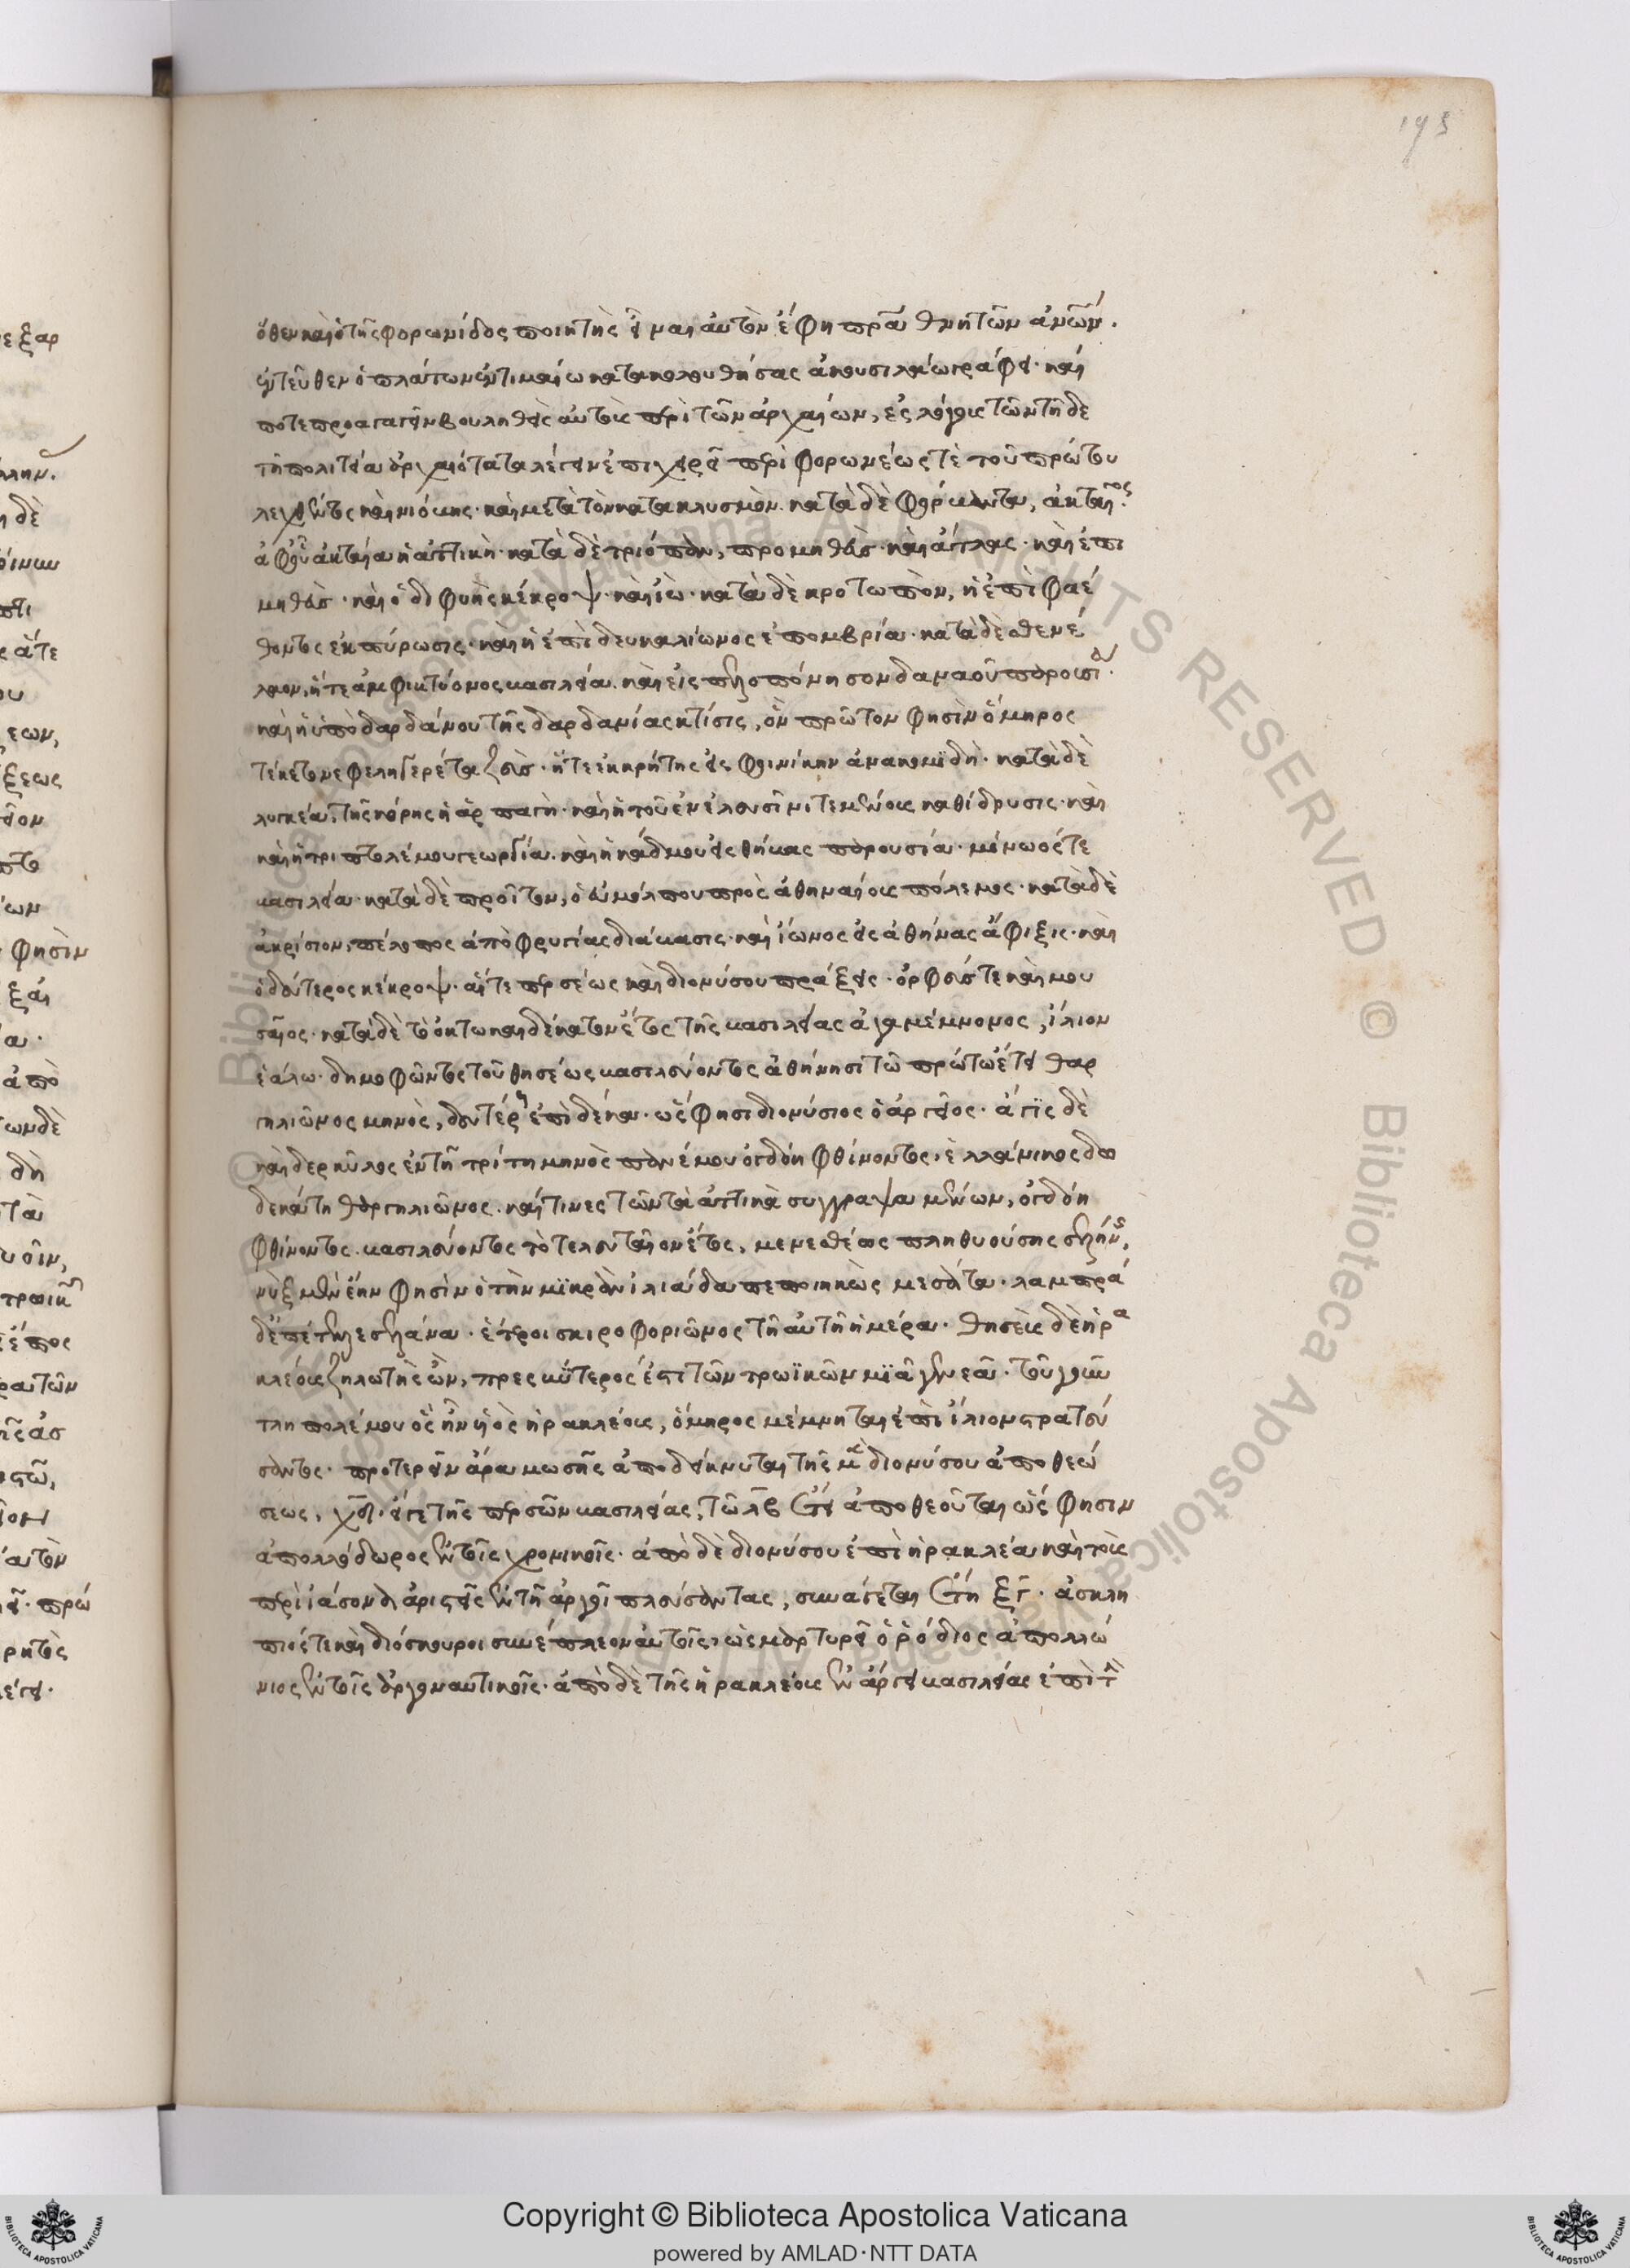 193
ὅθεν καὶ ὁ τῆς φορωνίδος ποιητὴς εἶναι αὐτὸν ἔφη πρα θνητῶν ἀνων.
ἐντεῦθεν ὁ πλάτων ἐν τιμαίω κατακολουθήσας ἀκουσιλάω γράφει· καί
ποτε προαγαγεῖν βουληθεὶς αὐτοὺς περὶ τῶν ἀρχαίων, εἰς λόγους τῶν τῆδε
τῆ πολιτεία ἀρχαιότατα λέγειν ἐπιχειρεῖ περὶ φορωνέως τὲ τοῦ πρώτου
λεχθέντος καὶ νιόβης· καὶ μετὰ τὸν κατακλυσμὸν. κατὰ δὲ φόρβαντα, ἀκταῖος
ἀφ' οὗ ἀκταία ἡ ἀττικὴ· κατὰ δὲ τριόπαν, προμηθεὺς· καὶ ἄτλας· καὶ ἐπι
μηθεὺς· καὶ ὁ διφυὴς κέκροψ· καὶ ἰὼ· κατὰ δὲ κροτωπὸν, ἡ ἐπὶ φαέ
θοντος ἐκπύρωσις· καὶ ἡ ἐπὶ δευκαλίωνος ἐπομβρία· κατὰ δὲ σθενέ
λαον, ἥ τε ἀμφικτύονος βασιλεία. καὶ εἰς πελοπόννησον δαναοῦ παρουσία.
καὶ ἡ ὑπὸ δαρδάνου τῆς δαρδανίας κτίσις, ὃν πρῶτον φησὶν ὅμηρος
τέκετο νεφεληγερέτα ζεὺς· ἥ τε ἐκ κρήτης εἰς φοινίκην ἀνακομϊδὴ· κατὰ δὲ
λυγκέα, τῆς κόρης ἡ ἁρπαγὴ· καὶ ἡ τοῦ ἐν ἐλευσῖνι τεμένους καθίδρυσις· καὶ
καὶ ἡ τριπτολέμου γεωργία. καὶ ἡ κάδμου εἰς θήβας παρουσία· μίνωός τε
βασιλεία· κατὰ δὲ προῖτον, ὁ εὐμόλπου πρὸς ἀθηναίους πόλεμος· κατὰ δὲ
ἀκρίσιον, πέλοπος ἀπὸ φρυγίας διάβασις· καὶ ἴωνος εἰς ἀθήνας ἄφιξις· καὶ
ὁ δεύτερος κέκροψ· αἵ τε περσέως καὶ διονύσου πράξεις· ὀρφεύς τε καὶ μου
σαῖος· κατὰ δὲ τὸ ὀκτωκαιδέκατον ἔτος τῆς βασιλείας ἀγαμέμνονος, ἴλιον
ἑάλω· δημοφῶντος τοῦ θησέως βασιλεύοντος ἀθήνησι τῶ πρώτω ἔτει θαρ
γηλιῶνος μηνὸς, δευτέρη ἐπὶ δέκα· ὥς φησι διονύσιος ὁ ἀργεῖος· ἀγῒς δὲ
καὶ δερκῦλος ἐν τῆ τρίτη μηνὸς πανέμου ὀγδόη φθίνοντος. ἑλλάνικος δω
δεκάτη θαργηλιῶνος. καί τινες τῶν τὰ ἀττικὰ συγγραψαμένων, ὀγδόη
φθίνοντος. βασιλεύοντος τὸ τελευταῖον ἔτος, μενεσθέως πληθυούσης σελήνης,
νὺξ μὲν ἔην φησὶν ὁ τὴν μϊκρὰν ἰλιάδα πεποιηκὼς μεσάτα. λαμπρά
δ' ἐπέτελλε σελάνα· ἕτεροι σκιροφοριῶνος τῆ αὐτῆ ἡμέρα. θησεὺς δὲ ἡρα
κλέους ζηλωτὴς ὢν, πρεσβύτερός ἐστι τῶν τρωϊκῶν μϊᾶ γενεᾶ· τοῦ γοῦν
τληπολέμου ὃς ἦν υἱὸς ἡρακλέους, ὅμηρος μέμνηται ἐπὶ ἴλιον στρατεύ
σαντος· προτερεῖν ἄρα μωσῆς ἀποδείκνυται τῆς μὲν διονύσου ἀποθεώ
σεως, χδ. εἴγε τῆς περσέως βασιλείας, τῶ λβ ἔτει ἀποθεοῦται ὥς φησιν
ἀπολλόδωρος ἐν τοῖς χρονικοῖς· ἀπὸ δὲ διονύσου ἐπὶ ἡρακλέα καὶ τοὺς
περὶ ἰάσονα ἀριστεῖς ἐν τῆ ἀργοῖ πλεύσαντας, συνάγεται ἔτη ξγ· ἀσκλη
πιός τε καὶ διόσκουροι συνέπλεον αὐτοῖς· ὡς μαρτυρεῖ ὁ ῥόδιος ἀπολλώ
νιος ἐν τοῖς ἀργοναυτικοῖς· ἀπὸ δὲ τῆς ἡρακλέους ἐν ἄργει βασιλείας ἐπὶ τὴν
Copyright © Biblioteca Apostolica Vaticana
powered by AMLAD·NTT DATA